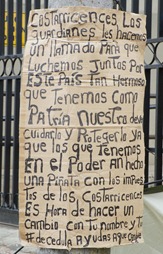 Costarricences Los
guardianes les hacemos
un llamado Para que
Luchemos Juntos Por
Este País tan Hermoso
que Tenemos Como
Patria nuestro deve
Cuidarlo y Protegerlo ya
que los que Tenemos
en el Poder an hecho
una Piñata con los impues
Tis de los Costarricences
Es Hora de hacer un
cambio Con Tu nombre y
# de cedula ayudas